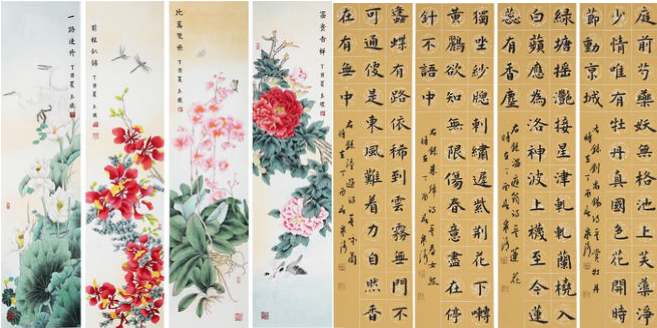 富貴吉祥
比翼雙飛
前程似錦
一路連升
庭前芍藥妖無格池上芙蕖淨
少情唯有牡丹真國色花開時
節動京城
綠塘搖灩接星津軋軋蘭橈入
白蘋應為洛神波上襪至今蓮
蕊有香塵
獨坐紗窓刺繡遲紫荊花下囀
黃鸝欲知無限傷春意盡在停
針不語中
蠭蝶有路依稀到雲霧無門不
可通便是東風難着力自然香
在有無中